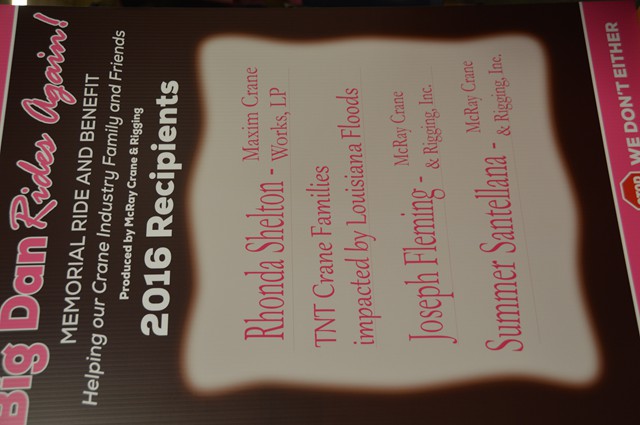 Big Dan Rides Again!
MEMORIAL RIDE AND BENEFIT
Helping our Crane Industry Family and Friends
Produced by McRay Crane & Rigging
2016 Recipients
Rhonda Shelton - Maxim Crane Works, LP
TNT Crane Families
impacted by Louisiana Floods
Joseph Fleming - McRay Crane & Rigging, Inc.
Summer Santellana - McRay Crane & Rigging, Inc.
STOP
WE DON'T EITHER